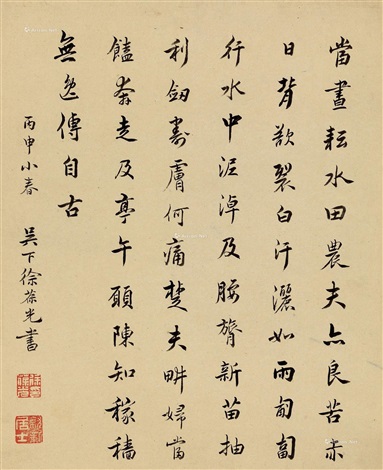 當晝耘水田農夫亦良苦赤
日背欲裂白汗灑如雨匍匐
行水中泥淖及腰膂新苗抽
利劒割膚何痛楚夫畊婦當
饁奔走及亭午願陳知稼穡
無逸傳自古
丙申小春 吳下徐葆光書